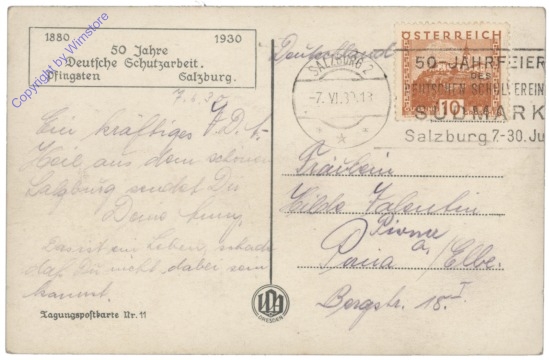 1880 1930
50 Jahre
Deutsche Schutzarbeit.
Pfingsten Salzburg.
Copyright by Wimstore
7.6.30
Ein kräftiges V.D.A.
Heil aus dem schönen
Salzburg sendet Dir
Deine
ein Leben, schade
daß Du nicht dabei sein
kannst.
Tagungspostkarte Nr. 11
DRESDEN
Deutschland
ÖSTERREICH
10
SALZBURG 2
-7.VI.30.13
50 JAHRFEIER
DES
DEUTSCHEN SCHULVEREIN
SÜDMARK
Salzburg 7-30. Ju
Fräulein
Hilde Valentin
Pirna
a.
Elbe.
Bergstr. 18 I